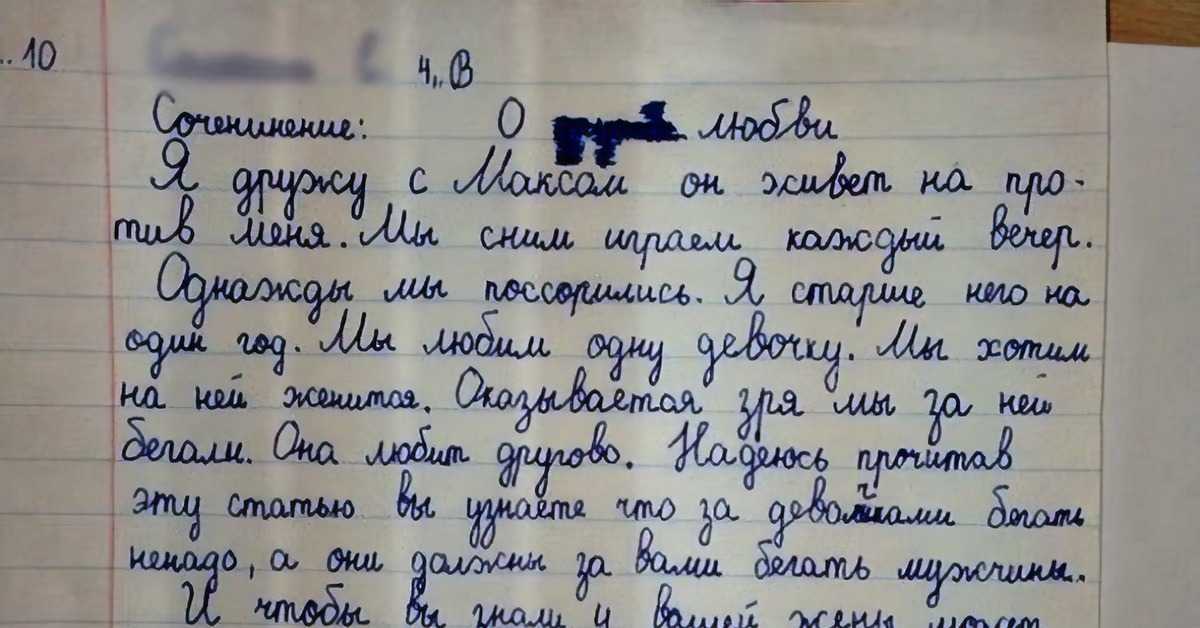 .. 10
4 „В
Соченинение: О любви
Я дружу с Максом он живет на про-
тив меня. Мы сним играем каждый вечер.
Однажды мы поссорились. Я старше него на
один год. Мы любим одну девочку. Мы хотим
на ней женится. Оказывается зря мы за ней
бегали. Она любит другово. Надеюсь прочитав
эту статью вы узнаете что за девочками бегать
ненадо, а они должны за вами бегать мужчины.
И чтобы вы знали у вашей жены может